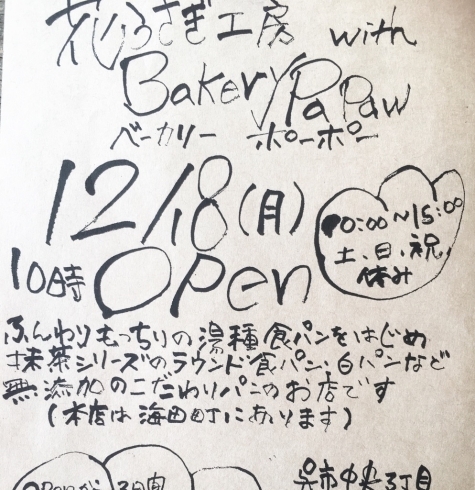 花うさぎ工房 with
Bakery PaPaw
ベーカリー ポーポー
12/18(月)
10:00~15:00
土、日、祝
休み
10時 Open
ふんわりもっちりの湯種食パンをはじめ
抹茶シリーズのラウンド食パン、白パンなど
無添加のこだわりパンのお店です
(本店は海田町にあります)
Openから3日間
呉市中央3丁目